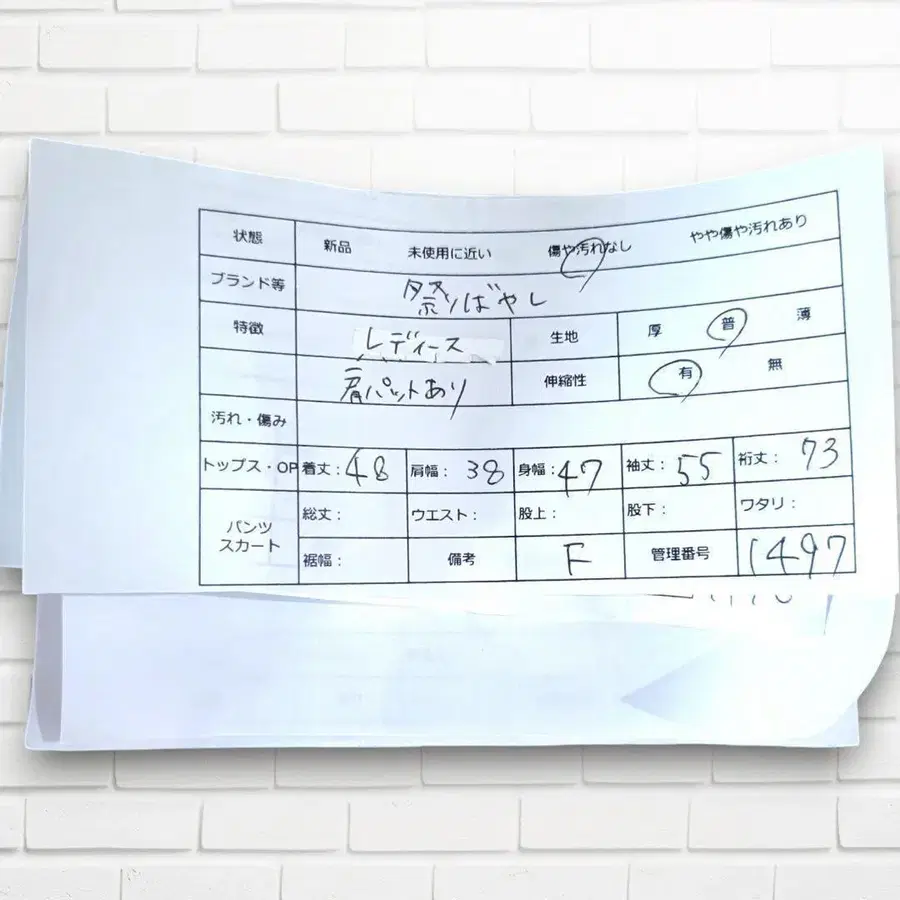 状態 新品 未使用に近い 傷や汚れなし やや傷や汚れあり
ブランド等 祭りばやし
特徴 レディース 生地 厚 普 薄
肩パットあり 伸縮性 有 無
汚れ・傷み
トップス・OP 着丈：48 肩幅：38 身幅：47 袖丈：55 裄丈：73
パンツ スカート 総丈： ウエスト： 股上： 股下： ワタリ：
裾幅： 備考 F 管理番号 1497